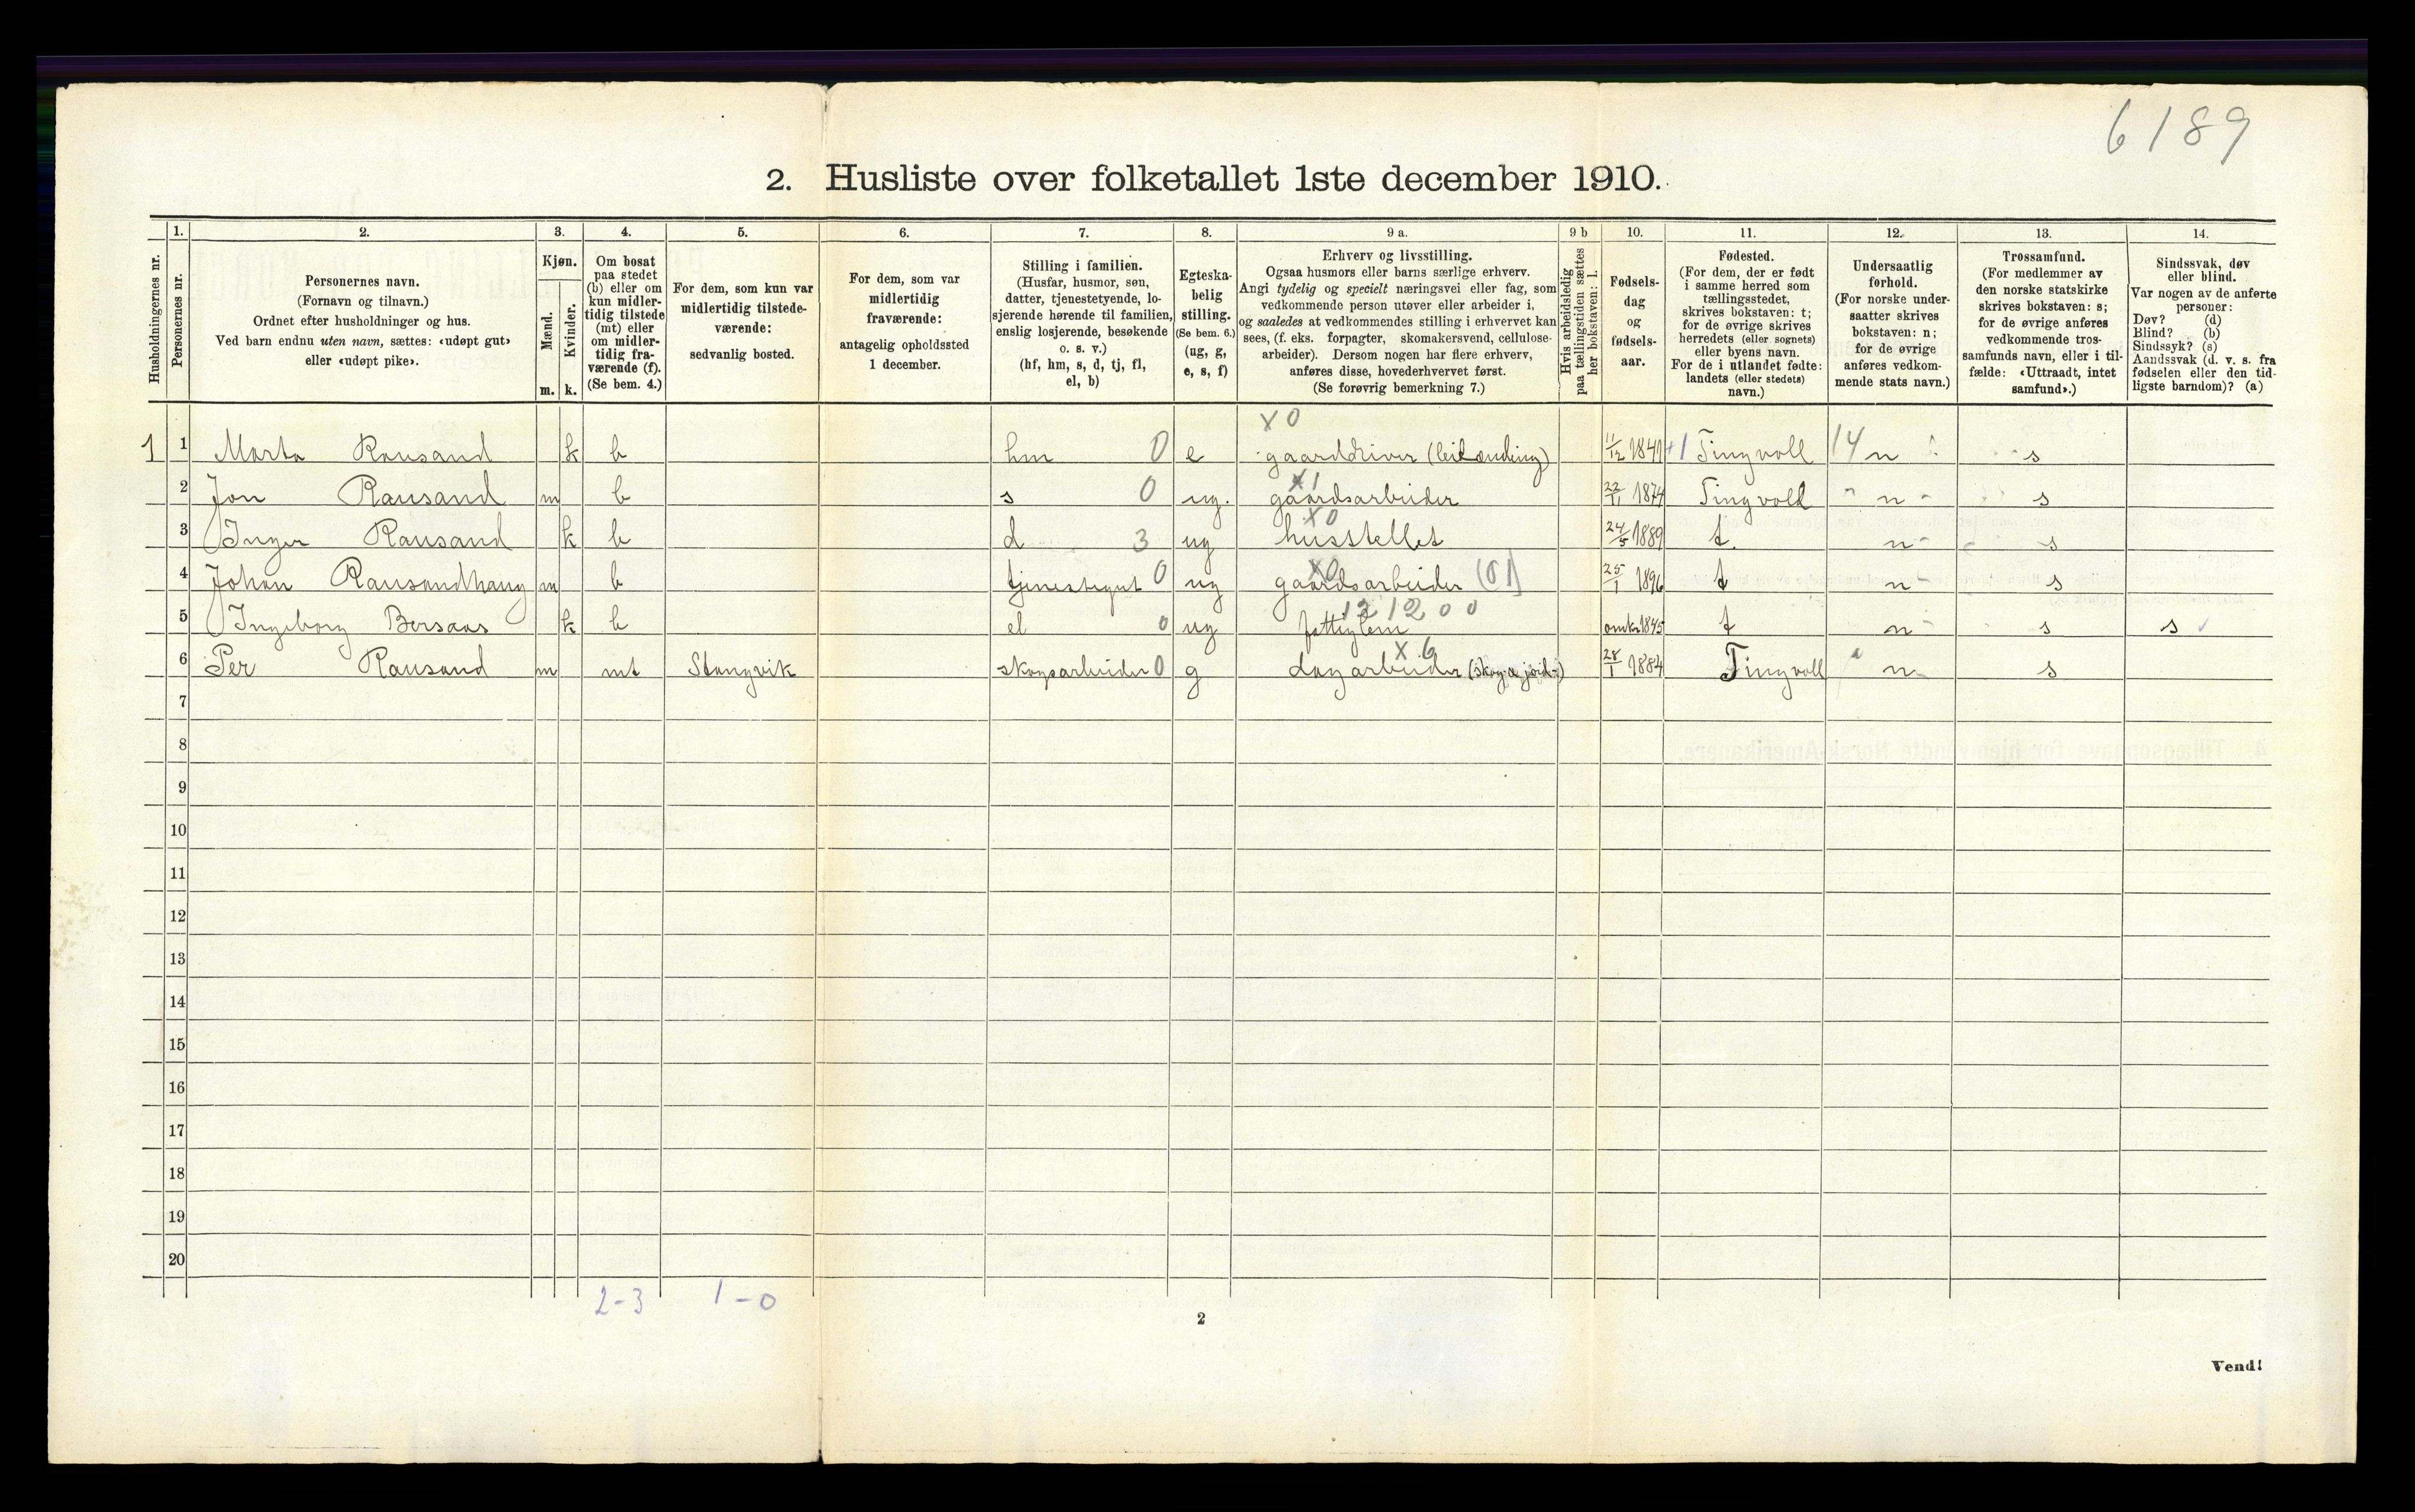 6189
2. Husliste over folketallet 1ste december 1910.
Husholdningernes nr.
1.
Personernes nr.
2.
Personernes navn.
(Fornavn og tilnavn.)
Ordnet efter husholdninger og hus.
Ved barn endnu uten navn, sættes: «udøpt gut»
eller «udøpt pike».
3.
Kjøn.
Mænd.
Kvinder.
m. k.
4.
Om bosat
paa stedet
(b) eller om
kun midler-
tidig tilstede
(mt) eller
om midler-
tidig fra-
værende (f).
(Se bem. 4.)
5.
For dem, som kun var
midlertidig tilstede-
værende:
sedvanlig bosted.
6.
For dem, som var
midlertidig
fraværende:
antagelig opholdssted
1 december.
7.
Stilling i familien.
(Husfar, husmor, søn,
datter, tjenestetyende, lo-
sjerende hørende til familien,
enslig losjerende, besøkende
o. s. v.)
(hf, hm, s, d, tj, fl,
el, b)
8.
Egteska-
belig
stilling.
(Se bem. 6.)
(ug, g,
e, s, f)
9 a.
Erhverv og livsstilling.
Ogsaa husmors eller barns særlige erhverv.
Angi tydelig og specielt næringsvei eller fag, som
vedkommende person utøver eller arbeider i,
og saaledes at vedkommendes stilling i erhvervet kan
sees, (f. eks. forpagter, skomakersvend, cellulose-
arbeider). Dersom nogen har flere erhverv,
anføres disse, hovederhvervet først.
(Se forøvrig bemerkning 7.)
9 b
Hvis arbeidsledig
paa tællingstiden sættes
her bokstaven: l.
10.
Fødsels-
dag
og
fødsels-
aar.
11.
Fødested.
(For dem, der er født
i samme herred som
tællingsstedet,
skrives bokstaven: t;
for de øvrige skrives
herredets (eller sognets)
eller byens navn.
For de i utlandet fødte:
landets (eller stedets)
navn.)
12.
Undersaatlig
forhold.
(For norske under-
saatter skrives
bokstaven: n;
for de øvrige
anføres vedkom-
mende stats navn.)
13.
Trossamfund.
(For medlemmer av
den norske statskirke
skrives bokstaven: s;
for de øvrige anføres
vedkommende tros-
samfunds navn, eller i til-
fælde: «Uttraadt, intet
samfund».)
14.
Sindssvak, døv
eller blind.
Var nogen av de anførte
personer:
Døv? (d)
Blind? (b)
Sindssyk? (s)
Aandssvak (d. v. s. fra
fødselen eller den tid-
ligste barndom)? (a)
X 0
1 1 Marta Rausand k b hm 0 e gaarddriver (leilænding) 11/12 1841 +1 Tingvoll 14 n s
X 1
2 Jon Rausand m b s 0 ug. gaardsarbeider 22/11 1874 Tingvold n s
X 0
3 Inger Rausand k b d 3 ug husstellet 24/5 1889 t. n s
X0
4 Johan Rausandhaug m b tjenestegut 0 ug gaardsarbeider (01) 25/1 1896 t n s
12 12 0 0
5 Ingeborg Bersaas k b el 0 ug fattiglem omkr 1845 t n s s
X 6
6 Per Rausand m mt Stangvik skogsarbeider 0 g dagarbeider (skog- a jord-) 28/1 1884 Tingvoll n s
7
8
9
10
11
12
13
14
15
16
17
18
19
20
2-3 1-0
2
Vend!